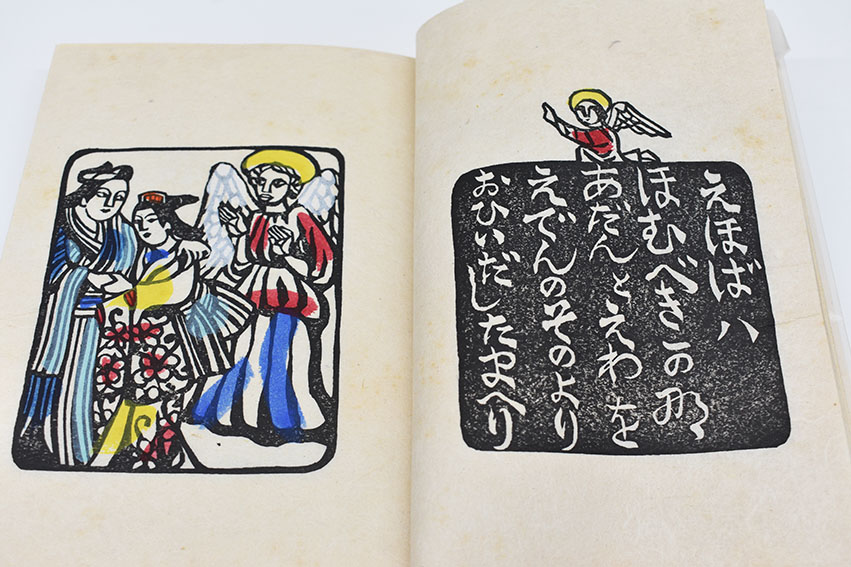 えほばハ
ほむべき可那
あだんとえわを
えでんのそのより
おひいだしたまへり